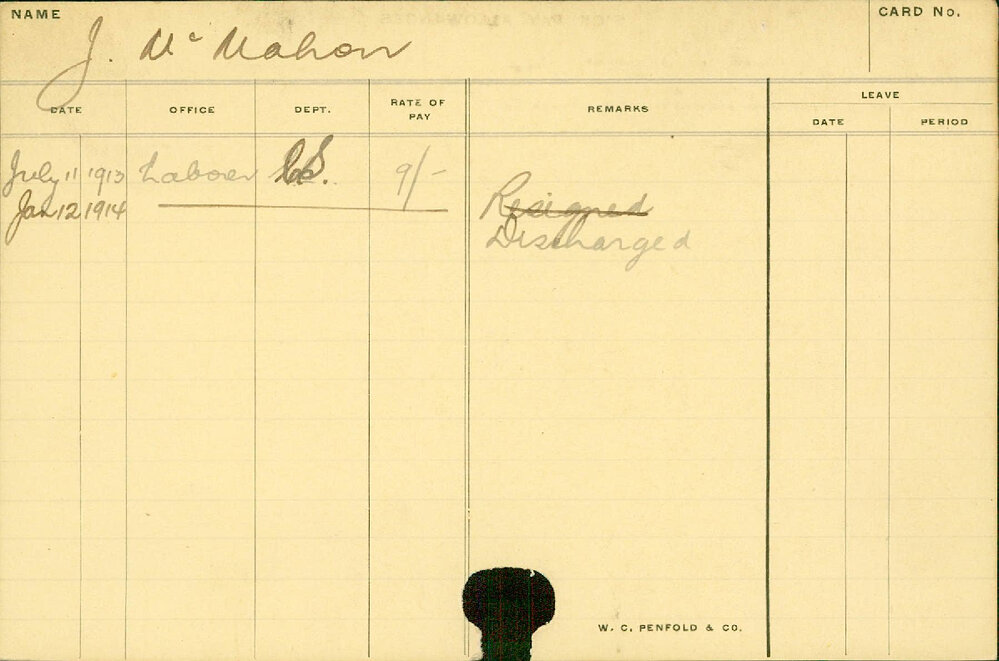 NAME
CARD No.
J. Mc Mahon
DATE OFFICE DEPT. RATE OF PAY REMARKS LEAVE
DATE PERIOD
July 11 1913 Laborer 9/-
Jan 12 1914 Resigned
Discharged
W. C. PENFOLD & CO.